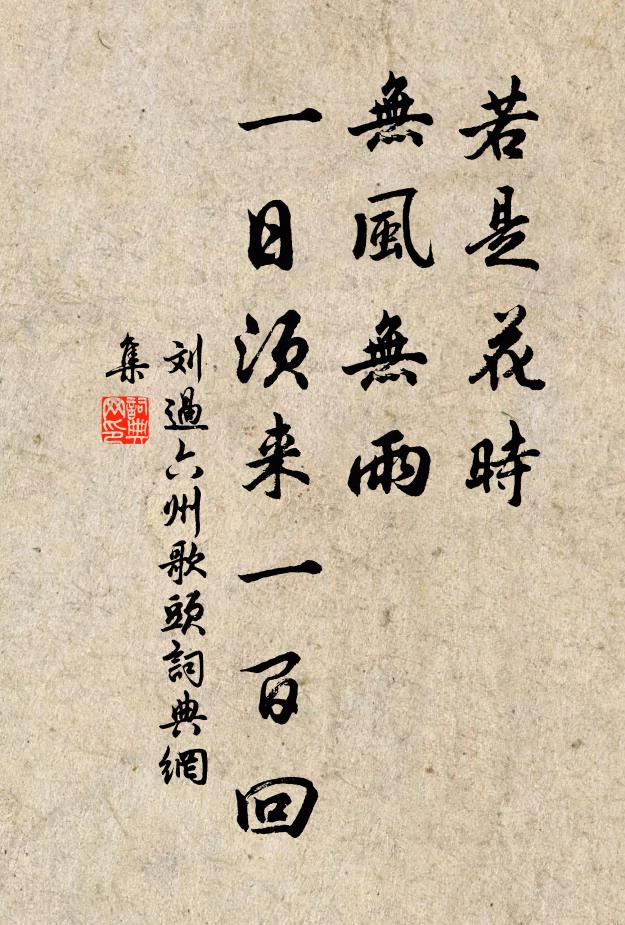 若是花時
無風無雨
一日須来一百回
刘過六州歌頭詞典網
集
詞典网印